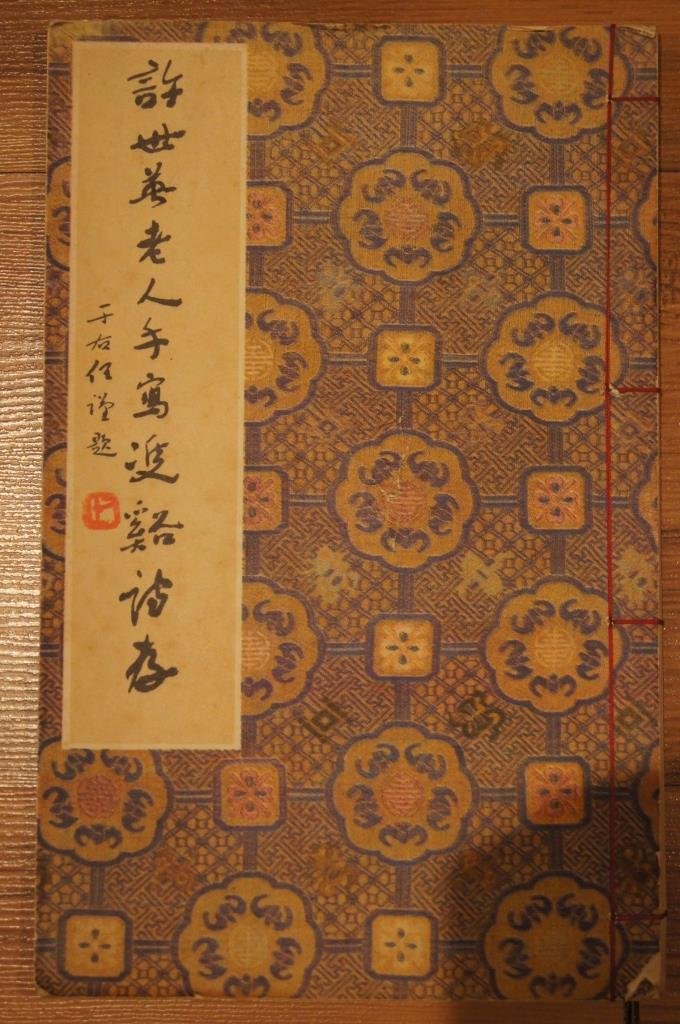 許世英老人手寫雙谿詩存
于右任謹題